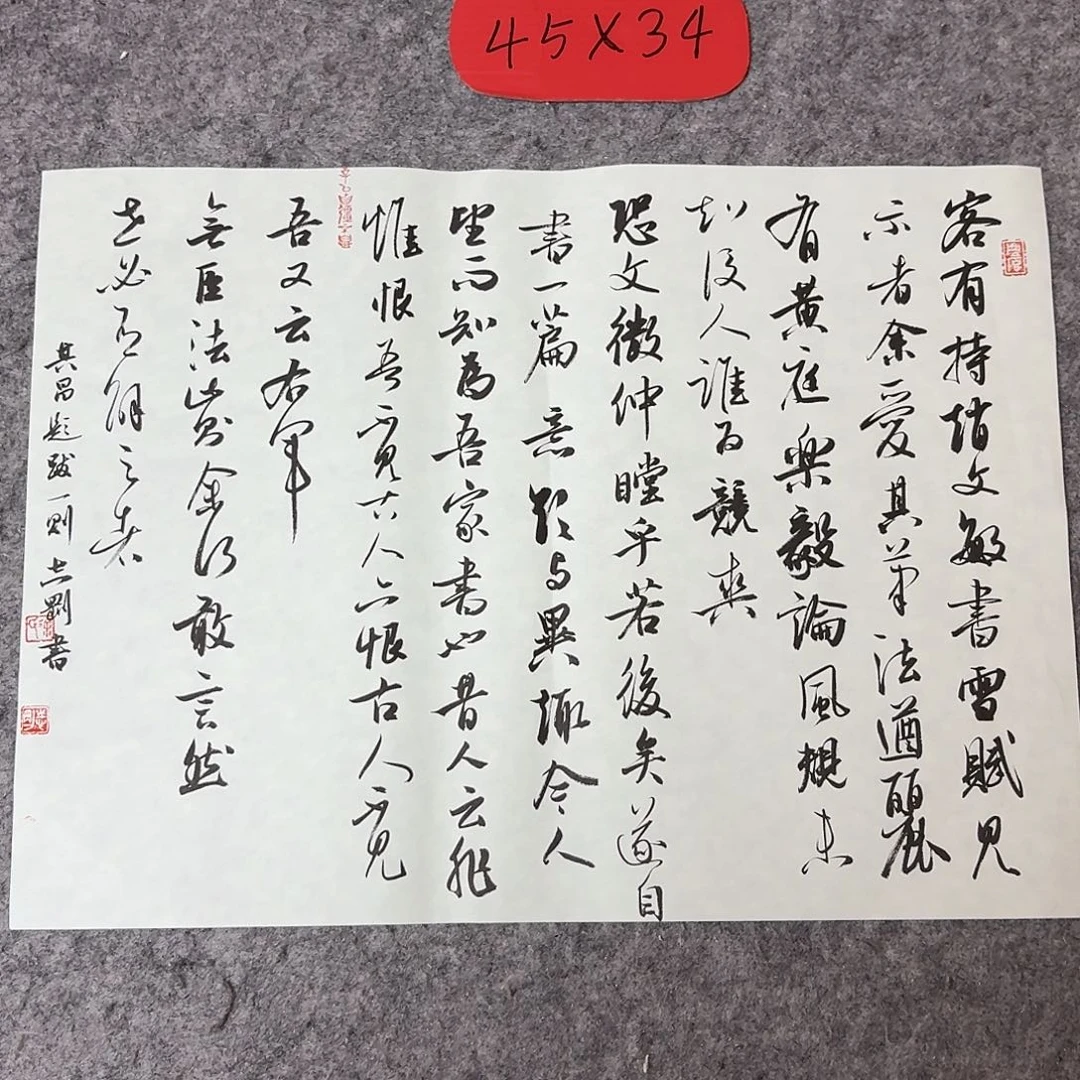 45X34
客有持趙文敏書雪賦見
示者余愛其筆法遒麗
有黃庭樂毅論風規未
知後人誰為競爽
恐文徵仲瞠乎若後矣遂自
書一篇意欲與異趣令人
望而知為吾家書也昔人云非
惟恨吾不見古人亦恨古人不見
吾又云右軍
無臣法此則余何敢言然
世必有解之者
其昌題跋一則志剛書